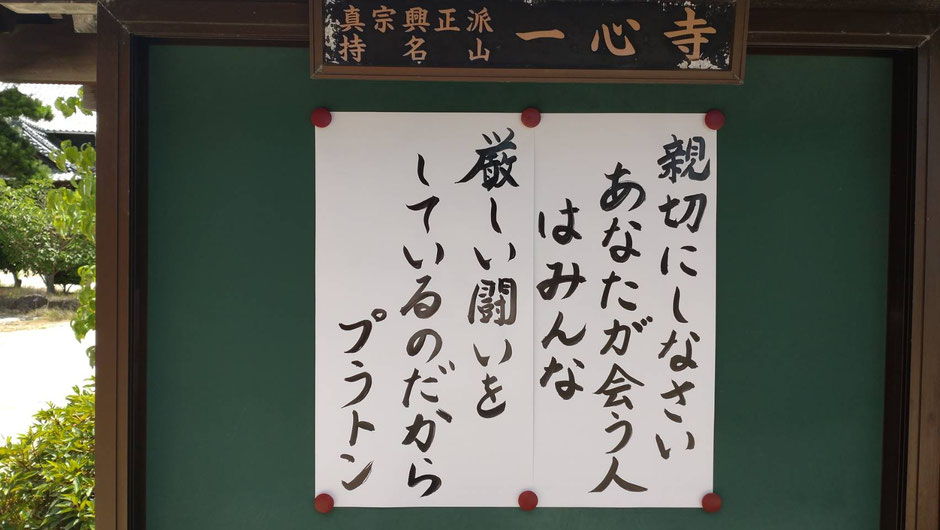 真宗興正派
持名山
一心寺
親切にしなさい
あなたが会う人
はみんな
厳しい闘いを
しているのだから
プラトン